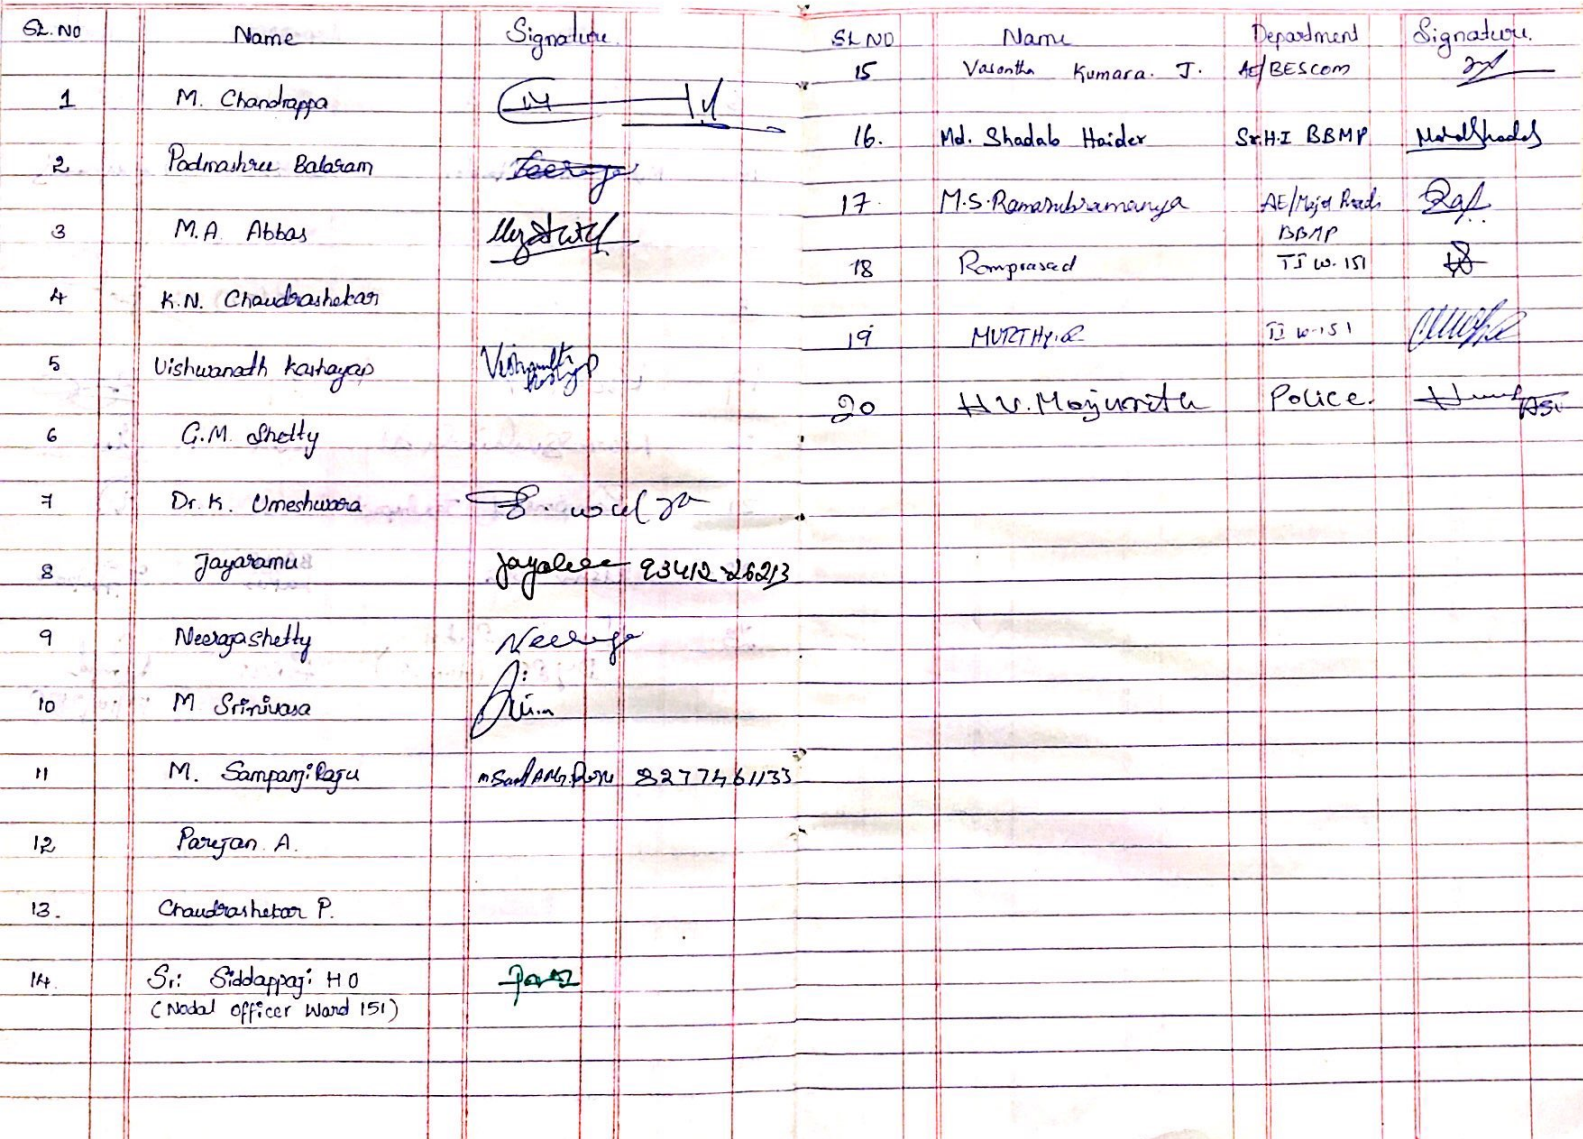 SL. NO Name Signature
1 M. Chandrappa
2 Padmashree Balaram
3 M.A. Abbas
4 K.N. Chandrashekar
5 Vishwanath Kashayap Vishwanath Kashyap
6 G.M. Shetty
7 Dr. K. Umeshwara
8 Jayaramu 93412 26213
9 Neerajashetty Neeraja
10 M Srinivasa
11 M. Sampangi Raju 8277461133
12 Parejan A.
13. Chandrashekar P.
14. Sri Siddappaji H O
(Nodal officer Ward 151)
SL NO Name Department Signature.
15 Vasantha Kumara. J. AE/BESCOM
16. Md. Shadab Haider Sr.H.I BBMP Mohd Shadab
17. M.S. Ramasubramanya AE/Major Roads
BBMP
18 Ramprasad W. 151
19 MURTHY.R W-151
20 H.V. Manjunath Police. ASI